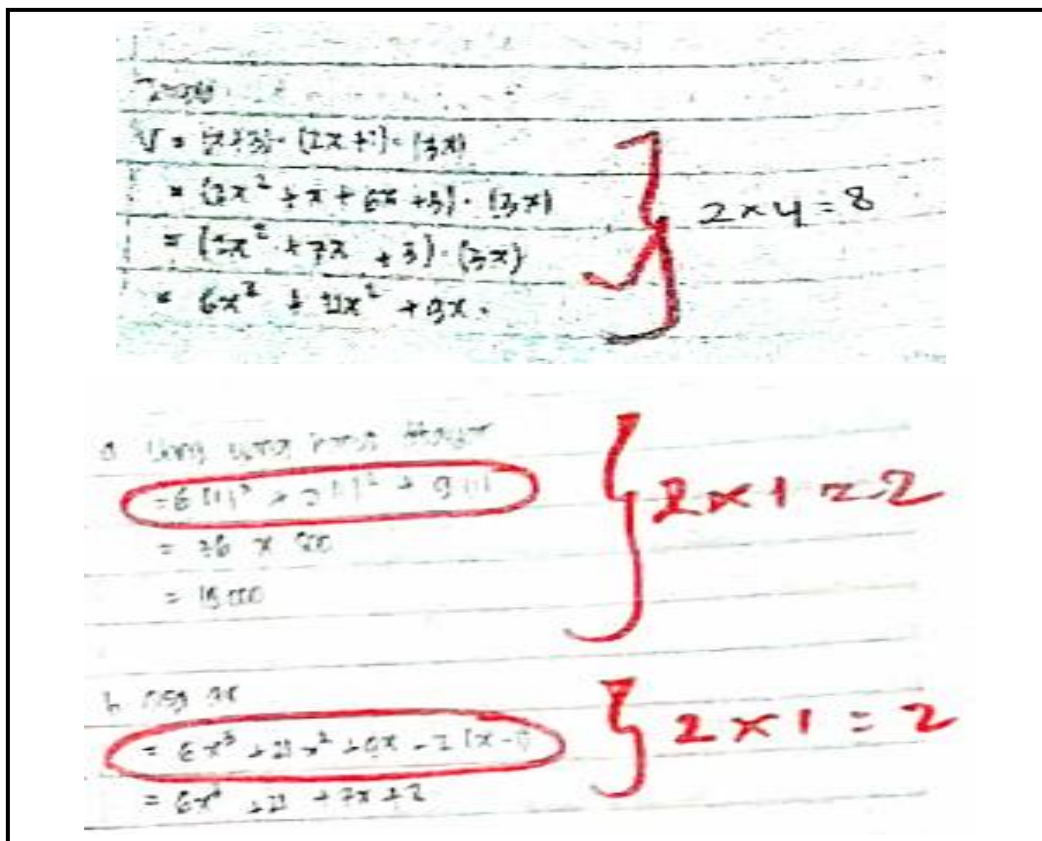 V = (x+3) · (2x+1) · (3x)
= (2x² + x + 6x + 3) · (3x)
= (2x² + 7x + 3) · (3x)
= 6x³ + 21x² + 9x.
2 × 4 = 8
a
= 6(1)³ + 21(1)² + 9(1)
= 36 x 500
= 18000
2 × 1 = 2
b
= 6x³ + 21x² + 9x - 2(x-1)
= 6x³ + 21 + 7x + 2
2 × 1 = 2